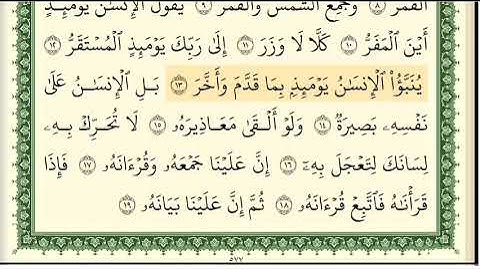 ٱلۡقَمَرُ ٨ وَجُمِعَ ٱلشَّمۡسُ وَٱلۡقَمَرُ ٩ يَقُولُ ٱلۡإِنسَٰنُ يَوۡمَئِذٍ
أَيۡنَ ٱلۡمَفَرُّ ١٠ كَلَّا لَا وَزَرَ ١١ إِلَىٰ رَبِّكَ يَوۡمَئِذٍ ٱلۡمُسۡتَقَرُّ ١٢
يُنَبَّؤُاْ ٱلۡإِنسَٰنُ يَوۡمَئِذِۭ بِمَا قَدَّمَ وَأَخَّرَ ١٣ بَلِ ٱلۡإِنسَٰنُ عَلَىٰ
نَفۡسِهِۦ بَصِيرَةٞ ١٤ وَلَوۡ أَلۡقَىٰ مَعَاذِيرَهُۥ ١٥ لَا تُحَرِّكۡ بِهِۦ
لِسَانَكَ لِتَعۡجَلَ بِهِۦٓ ١٦ إِنَّ عَلَيۡنَا جَمۡعَهُۥ وَقُرۡءَانَهُۥ ١٧ فَإِذَا
قَرَأۡنَٰهُ فَٱتَّبِعۡ قُرۡءَانَهُۥ ١٨ ثُمَّ إِنَّ عَلَيۡنَا بَيَانَهُۥ ١٩
٥٧٧